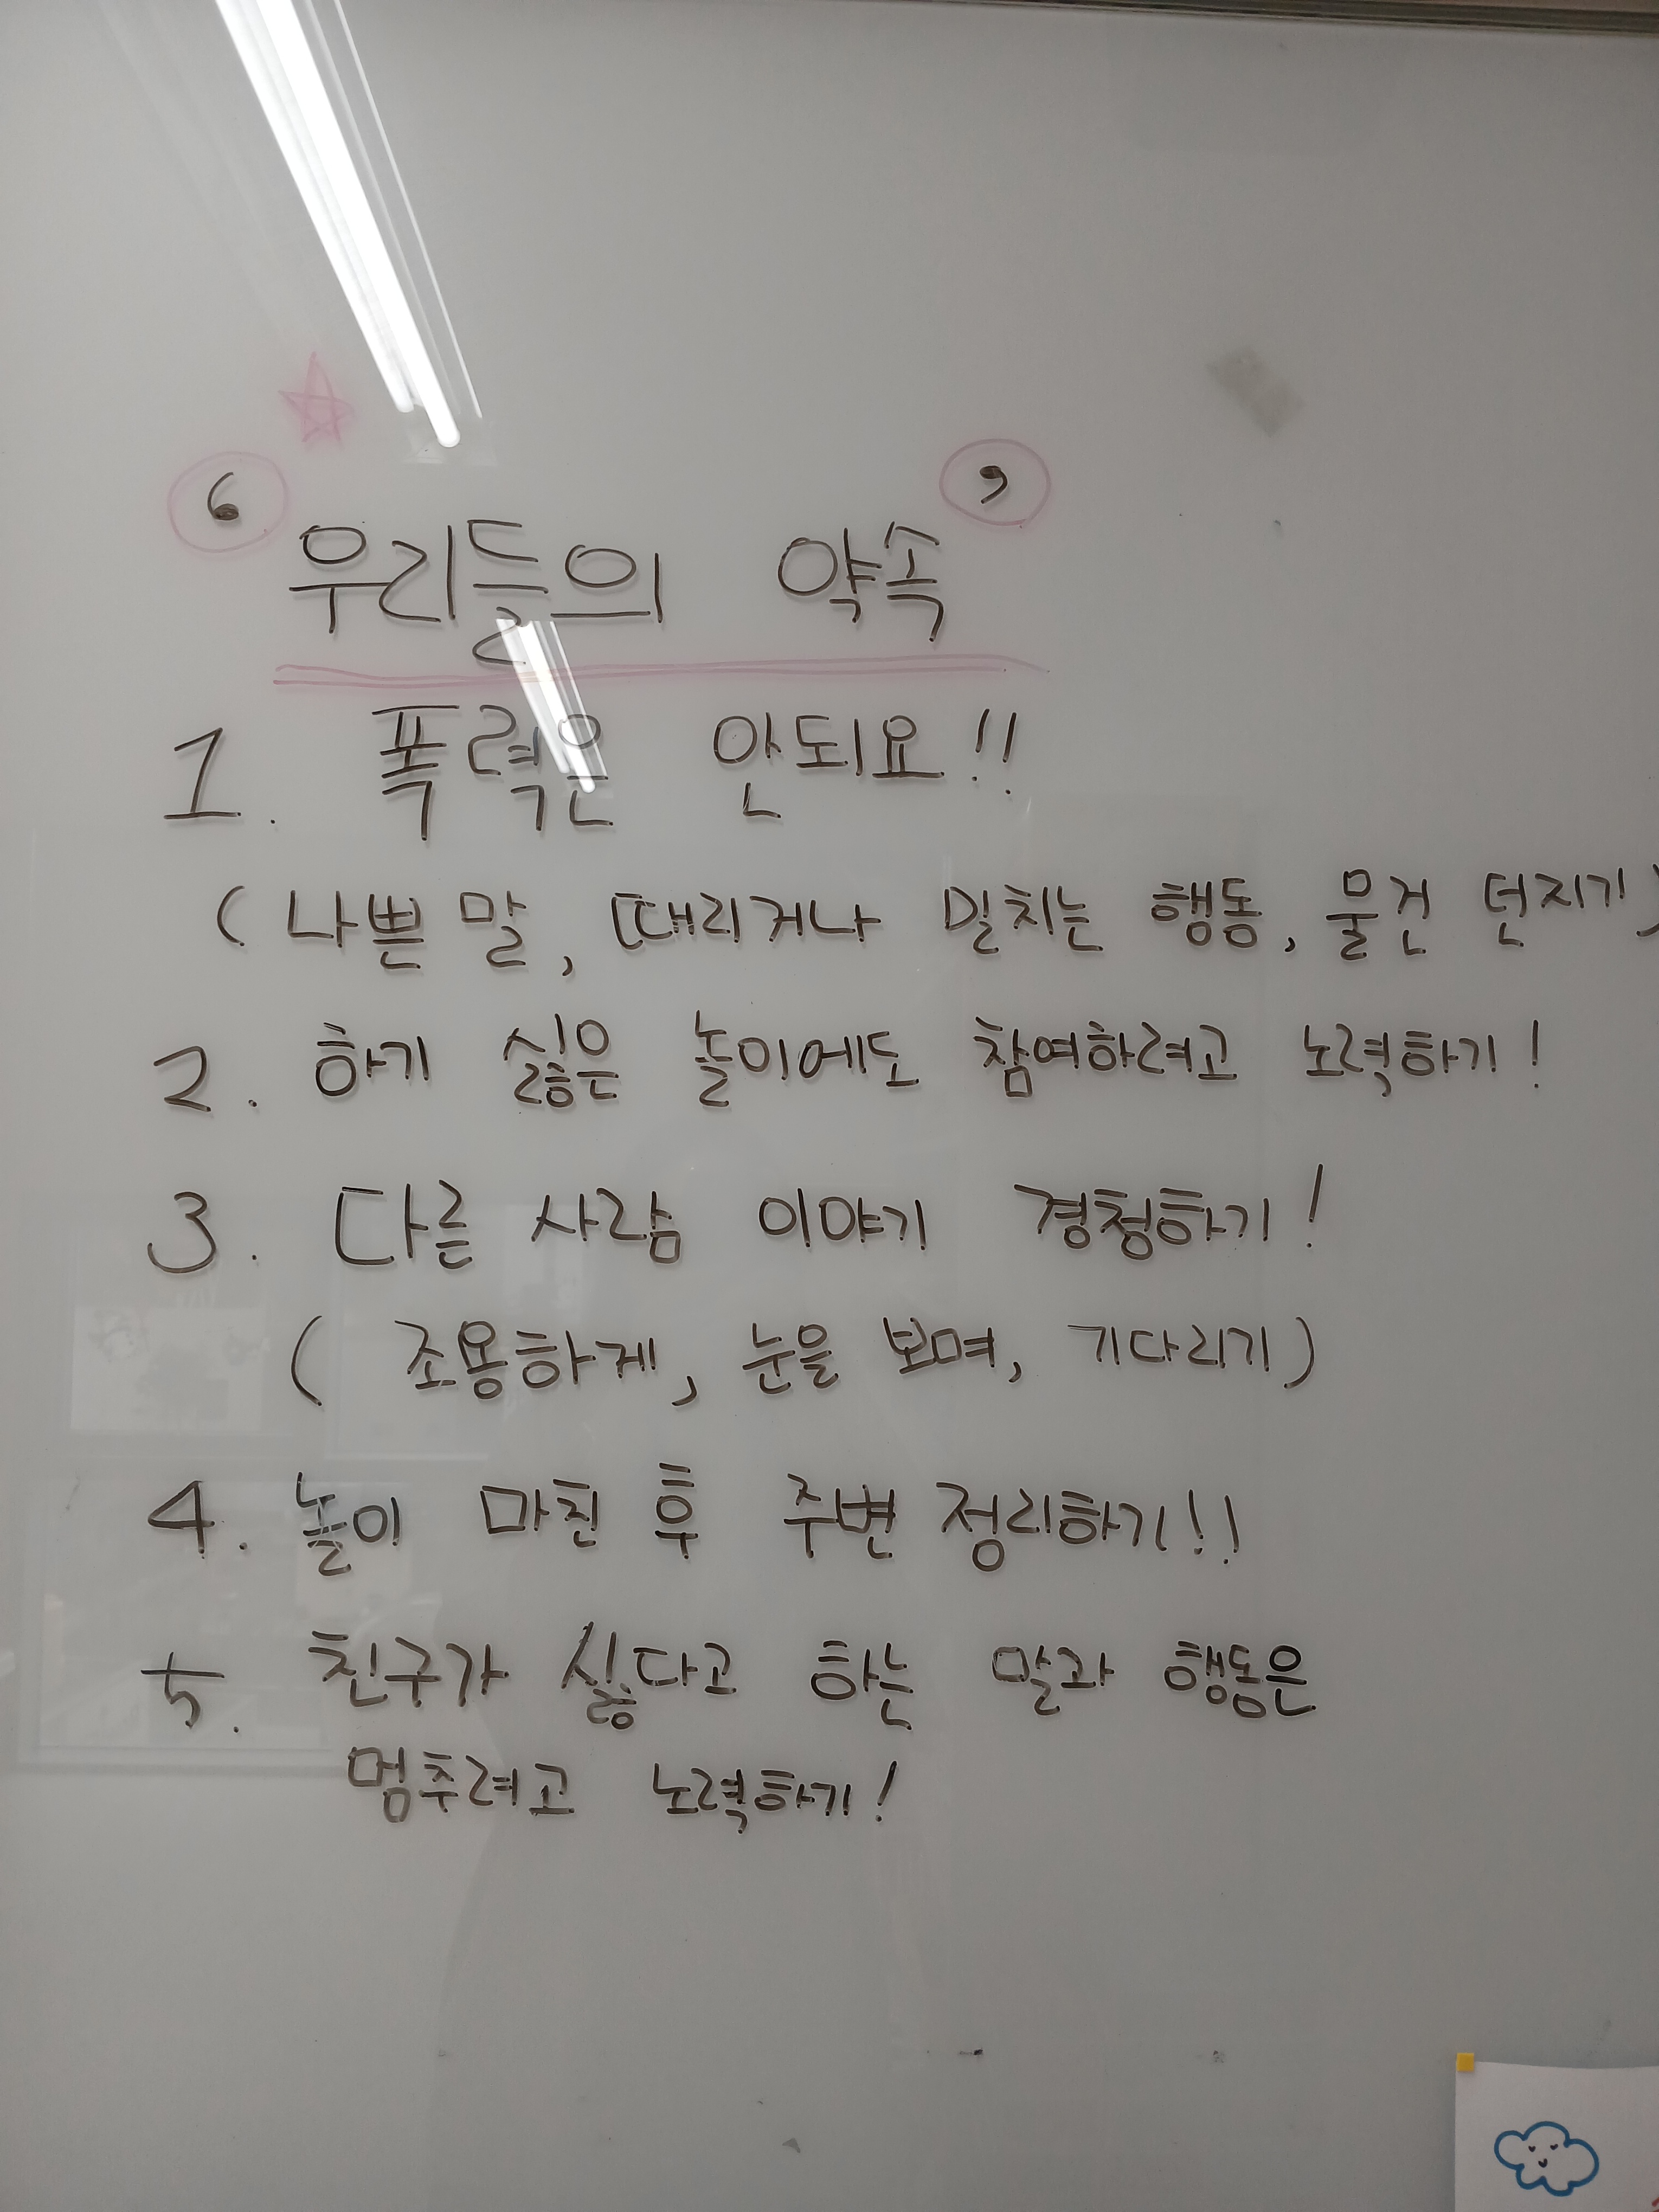 ‘우리들의 약속’
1. 폭력은 안되요!!
(나쁜 말, 때리거나 밀치는 행동, 물건 던지기)
2. 하기 싫은 놀이에도 참여하려고 노력하기!
3. 다른 사람 이야기 경청하기!
(조용하게, 눈을 보며, 기다리기)
4. 놀이 마친 후 주변 정리하기!!
5. 친구가 싫다고 하는 말과 행동은
멈추려고 노력하기!